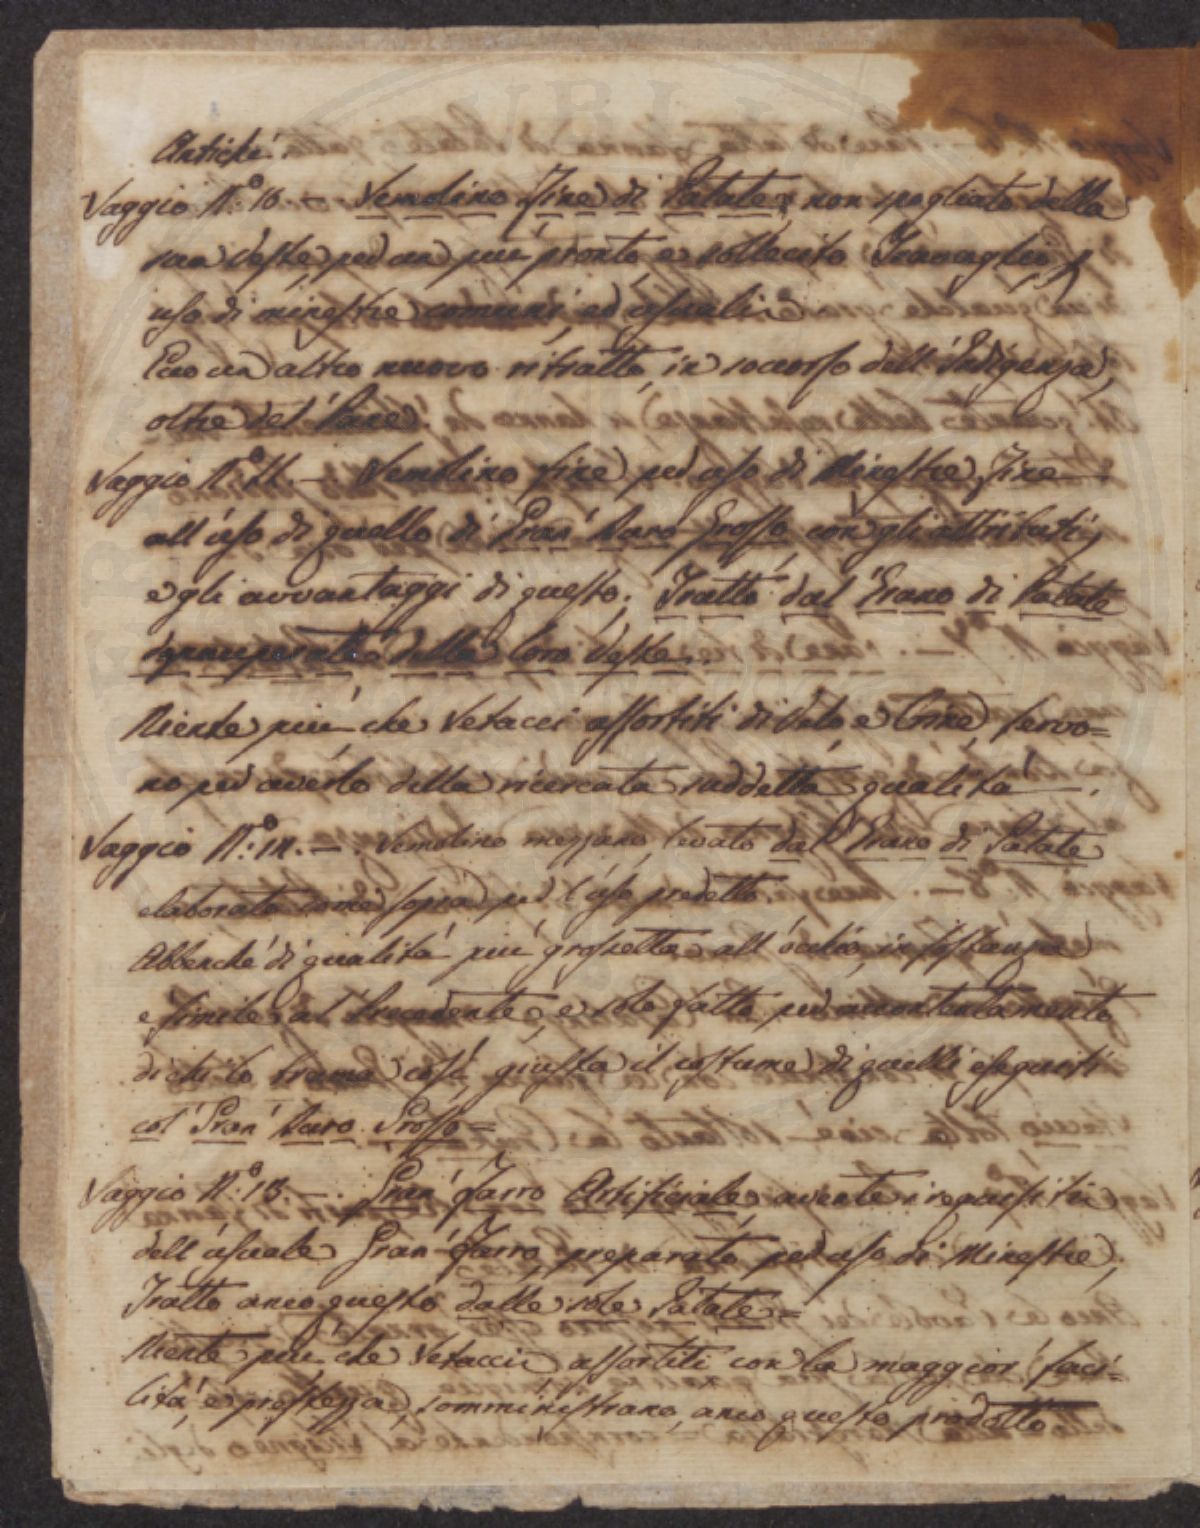 Antiché.
Saggio N.º 10. — Semolino fine di Patate, non spogliato della
sua veste per un piú pronto e sollecito Travaglio p
uso di minestre comuni ed usuali.
Ecco un altro nuovo ritratto in socorso dell' Indigenza,
oltre del Pane.
Saggio N.º 11. — Semolino fine per uso di Minestre fine
all' uso di quello di Gran' Duro Grosso con gli attributi,
e gli avvantaggi di questo. Tratto dal Grano di Patate
della loro veste.
Niente piú che Setacci assortiti di Seta e Crine, servo=
no per averlo della ricercata suddetta qualitá.
Saggio N.º 12. — Semolino mezzano, levato dal Grano di Patate
elaborato come sopra per l' uso predetto.
Abbenché di qualitá piú grossetta all' occhio, in sostanza
e simile al Precedente, e solo fatto per accontentamento
di chi lo brama cosí, giusta il costume di quelli eseguiti
col Gran' Duro Grosso =
Saggio N.º 13. — Gran' farro Artificiale avente i requisiti
dell' usuale Gran' farro, preparato per uso di Minestre,
Tratto anco questo dalle sole Patate =
Niente piú che Setacci assortiti con la maggior' faci=
litá, e prestezza, somministrano anco questo prodotto